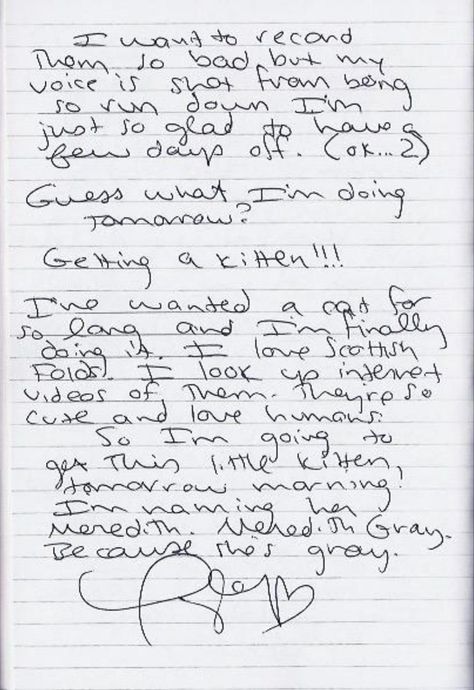 I want to record
them so bad, but my
voice is shot from being
so run down I'm
just so glad to have a
few days off. (ok...2)
Guess what I'm doing
tomorrow?
Getting a kitten!!!
I've wanted a cat for
so long and I'm finally
doing it. I love Scottish
Folds. I look up internet
videos of them. They're so
cute and love humans.
So I'm going to
get this little kitten,
tomorrow morning!
I'm naming her
Meredith. Meredith Gray.
Because she's gray.